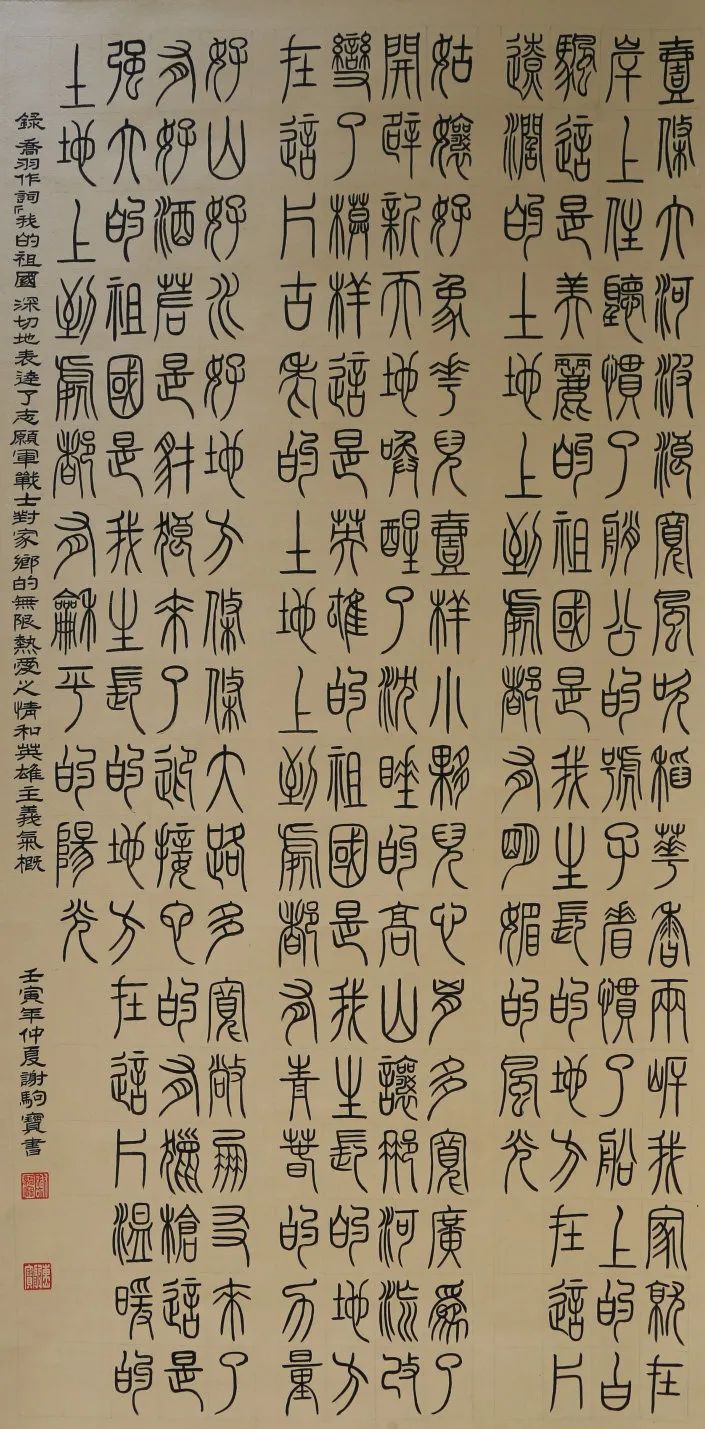 壹條大河波浪寬風吹稻華香兩岸我家就在
岸上住聽慣了艄公的號子看慣了船上的白
騆這是美麗的祖國是我生長的地方在這片
遼濶的土地上到處都有明媚的風光
姑孃好象花兒壹樣小夥兒心匈多寬廣爲了
開辟新天地喚醒了沈睡的高山讓那河流改
變了模样這是英雄的祖國是我生長的地方
在這片古老的土地上到處都有青春的力量
好山好水好地方條條大路多寬敞朋友來了
有好酒若是豺狼來了迎接它的有獵槍這是
强大的祖國是我生長的地方在這片温暖的
土地上到處都有龢平的陽光
錄喬羽作詞「我的祖國 深切地表達了志願軍戰士對家鄉的無限熱愛之情和英雄主義氣概
壬寅年仲夏謝駒寶書